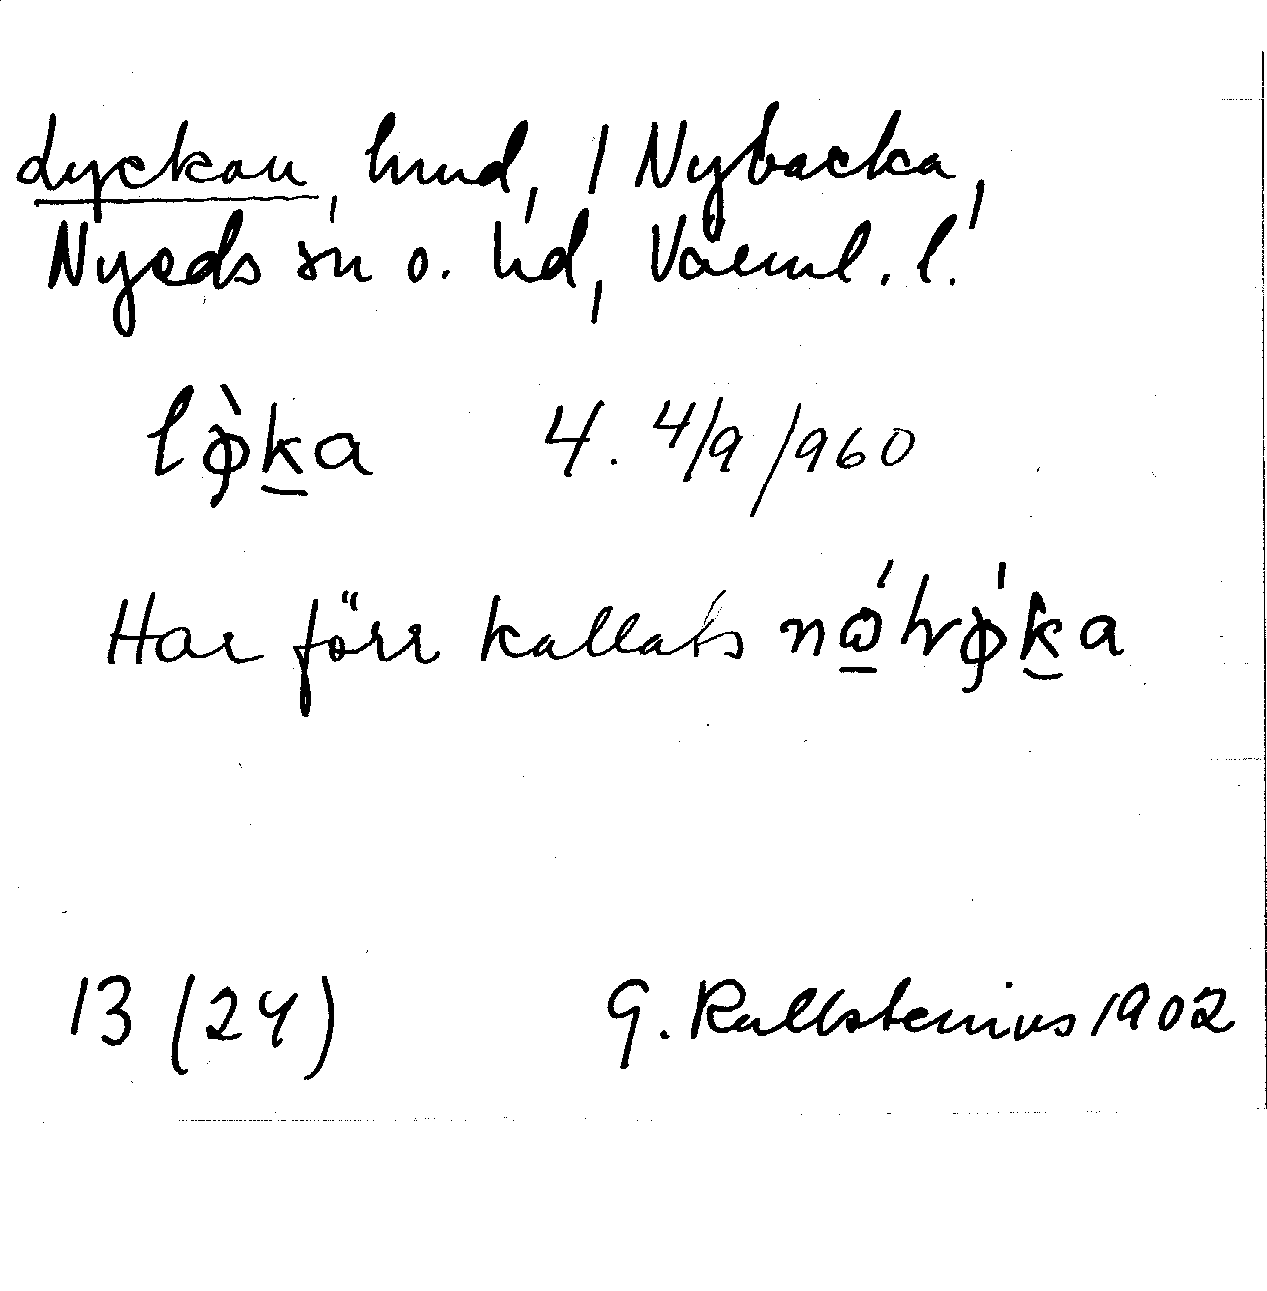 Lyckan, hmd, / Nybacka,
Nyeds sn o. hd, Värml. l.
lø̀ḵa 4. 4/9 /960
Har förr kallats
13 (24) G. Kallstenius 1902